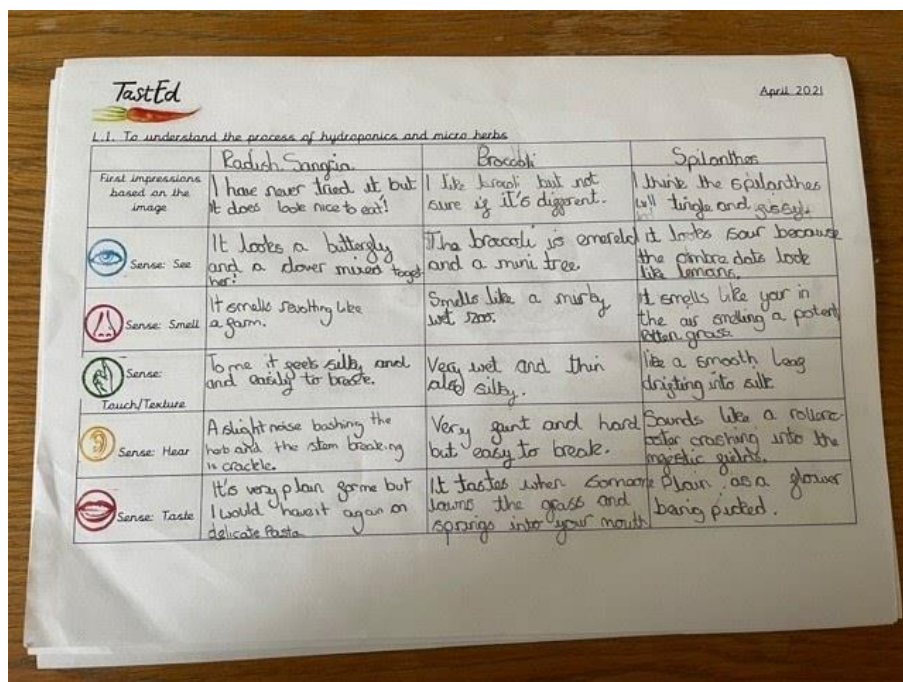 TastEd
April 2021
L.I. To understand the process of hydroponics and micro herbs
Radish Sangria
Broccoli
Spilanthes
First impressions
based on the
image
I have never tried it but
it does look nice to eat!
I like brocoli but not
sure if it's different.
I think the spilanthes
will tingle and
Sense: See
It looks a butterfly
and a clover mixed toget
her!
The broccoli is emereld
and a mini tree.
it looks sour because
the ombre dots look
like lemans.
Sense: Smell
It smells revolting like
a farm.
Smells like a
wet
it smells like your in
the air smelling a potent
grass
Sense:
Touch/Texture
To me it feels silky and
and easily to break.
Very wet and thin
also silky.
like a smooth leaf
drifting into silk
Sense: Hear
A slight noise bashing the
herb and the stem breaking
is crackle.
Very and hard
but easy to break.
Sounds like a
coster crashing into the
majestic
Sense: Taste
It's very plain for me but
I would have it again on
delicate Pasta
It tastes when someone
lawns the grass and
springs into your mouth
Plain as a flower
being picked.